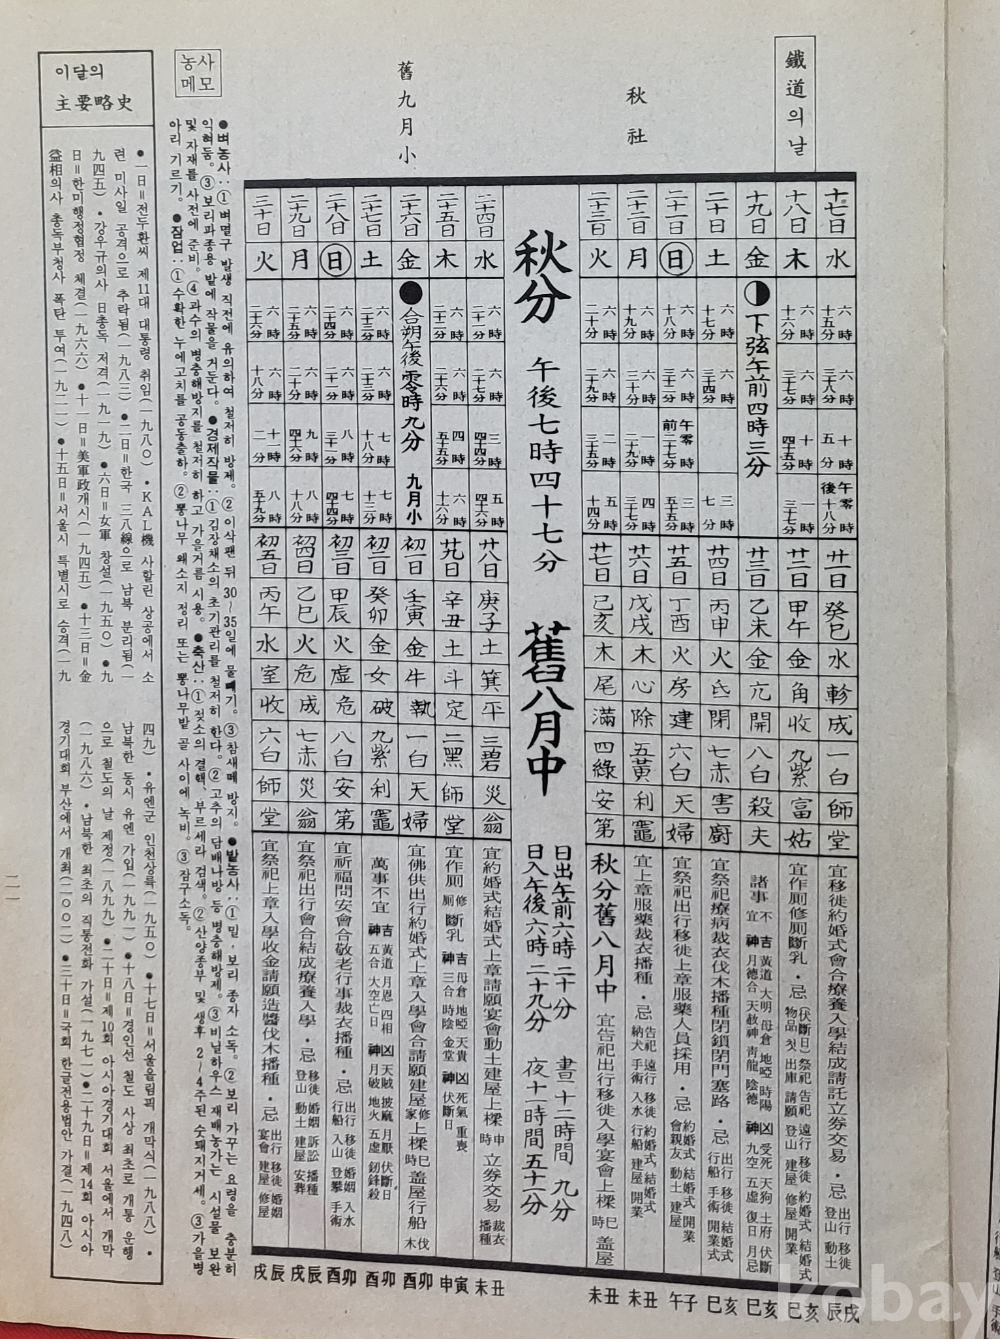 鐵道의 날
秋社
舊九月小
농사
메모
이달의
主要略史
十七日 水 六時十五分 六時三十八分 十時五分 午後零時十八分 廿一日 癸巳 水 軫 成 一白 師 堂 宜移徙約婚式會合療養入學結成請託立券交易・忌 出行 移徙 登山 動土
十八日 木 六時十六分 六時三十七分 十時四十五分 一時三十七分 廿二日 甲午 金 角 收 九紫 富 姑 宜作厠修厠斷乳・忌
十九日 金 下弦午前四時三分 廿三日 乙未 金 亢 開 八白 殺 夫 諸事不宜
二十日 土 六時十七分 六時三十四分 三時七分 廿四日 丙申 火 氐 閉 七赤 害 廚 宜祭祀療病裁衣伐木播種閉鎖閉門塞路・忌 出行 移徙 結婚式 行船 手術 開業式
二十一日 ㊐ 六時十八分 六時三十二分 午前零時二十七分 三時五十五分 廿五日 丁酉 火 房 建 六白 天 婦 宜祭祀出行移徙上章服藥人員採用・忌 約婚式 結婚式 開業 會親友 動土 建屋
二十二日 月 六時十九分 六時三十分 一時二十九分 四時三十七分 廿六日 戊戌 木 心 除 五黃 利 竈 宜上章服藥裁衣播種・忌 告祀 遠行 移徙 約婚式 結婚式 納犬 手術 入水 行船 建屋 開業
二十三日 火 六時二十分 六時二十九分 二時三十五分 五時十四分 廿七日 己亥 木 尾 滿 四綠 安 第 秋分舊八月中 宜告祀出行移徙入學宴會上樑 巳時 盖屋
秋分 午後七時四十七分 舊八月中 日出午前六時二十分 日入午後六時二十九分 晝十二時間九分 夜十一時間五十一分
二十四日 水 六時二十一分 六時二十七分 三時四十四分 五時四十六分 廿八日 庚子 土 箕 平 三碧 災 翁 宜約婚式結婚式上章請願宴會動土建屋上樑 申時 立券交易 裁衣 播種
二十五日 木 六時二十二分 六時二十六分 四時五十五分 六時十六分 廿九日 辛丑 土 斗 定 二黑 師 堂 宜作厠修厠斷乳
二十六日 金 合朔午後零時九分 九月小 初一日 壬寅 金 牛 執 一白 天 婦 宜佛供出行約婚式上章入學會合請願建屋修家上樑 巳時 盖屋行船伐木
二十七日 土 六時二十三分 六時二十三分 七時十八分 七時十三分 初二日 癸卯 金 女 破 九紫 利 竈 萬事不宜
二十八日 ㊐ 六時二十四分 六時二十一分 八時三十一分 七時四十四分 初三日 甲辰 火 虛 危 八白 安 第 宜祈福問安會合敬老行事裁衣播種・忌 出行 移徙 婚姻 入水 行船 入山 登攀 手術
二十九日 月 六時二十五分 六時二十分 九時四十六分 八時十八分 初四日 乙巳 火 危 成 七赤 災 翁 宜祭祀出行會合結成療養入學・忌 移徙 婚姻 訴訟 播種 登山 動土 建屋 安葬
三十日 火 六時二十六分 六時十八分 十一時二分 八時五十九分 初五日 丙午 水 室 收 六白 師 堂 宜祭祀上章入學收金請願造醬伐木播種・忌 出行 移徙 婚姻 宴會 建屋 修屋
辰戌 巳亥 巳亥 巳亥 午子 未丑 未丑 未丑 申寅 酉卯 酉卯 酉卯 戌辰 戌辰
●벼농사:①벼멸구 발생 직전에 유의하여 철저히 방제。②이삭팬 뒤 30~35일에 물빼기。③참새떼 방지。●밭농사:①밀・보리 종자 소독。②보리 가꾸는 요령을 충분히
익혀둠。③보리파종용 밭에 작물을 거둔다。●경제작물:①김장채소의 초기관리를 철저히 한다。②고추의 담배나방 등 병충해방제。③비닐하우스 재배농가는 시설물 보완
및 자재를 사전에 준비。④과수의 병충해방지를 철저히 하고 가을거름 시용。●축산:①젖소의 결핵、부르세라 검색。②산양종부 및 생후 2~4주된 숫돼지거세。③가을병
아리 기르기。●잠업:①수확한 누에고치를 공동출하。②뽕나무 왜소지 정리 또는 뽕나무밭 골 사이에 녹비。③잠구소독。
●一日=전두환씨 제11대 대통령 취임(一九八〇)・KAL機 사할린 상공에서 소
련 미사일 공격으로 추락됨(一九八三)●二日=한국 三八線으로 남북 분리됨(一
九四五)・강우규의사 日총독 저격(一九一九)●六日=女軍 창설(一九五〇)●九
日=한미행정협정 체결(一九六六)●十一日=美軍政개시(一九四五)●十三日=金
益相의사 총독부청사 폭탄 투여(一九二一)●十五日=서울시 특별시로 승격(一九
四九)・유엔군 인천상륙(一九五〇)●十七日=서울올림픽 개막식(一九八八)・
남북한 동시 유엔 가입(一九九一)●十八日=경인선 철도 사상 최초로 개통 운행
으로 철도의 날 제정(一八九九)●二十日=제10회 아시아경기대회 서울에서 개막
(一九八六)・남북한 최초의 직통전화 가설(一九七一)●二十九日=제14회 아시아
경기대회 부산에서 개최(二〇〇二)●三十日=국회 한글전용법안 가결(一九四八)
二一
kobay